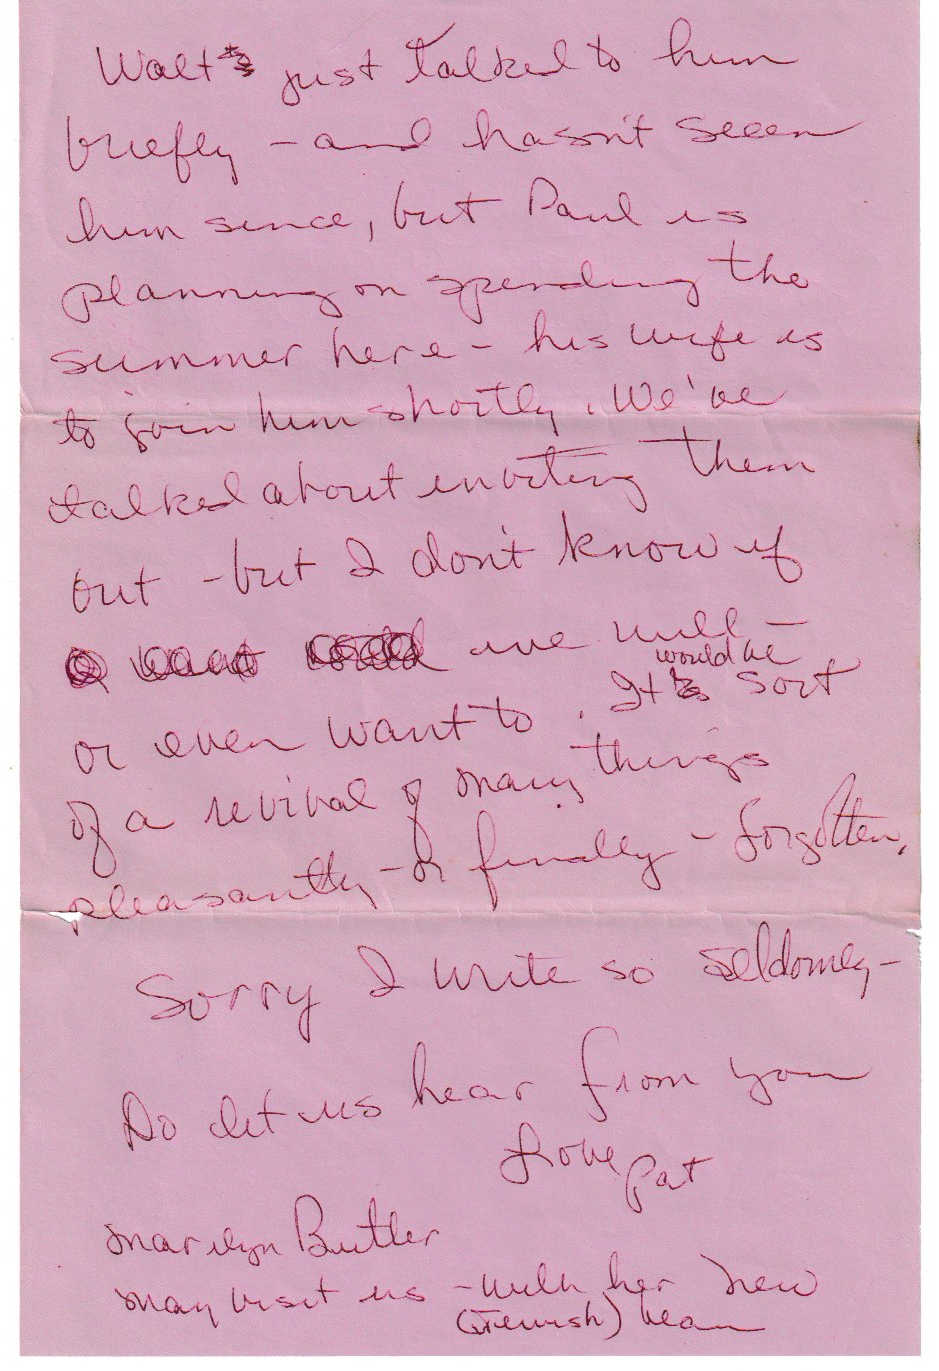 Walt just talked to him
briefly - and hasn't seeen
him since, but Paul is
planning on spending the
summer here - his wife is
to join him shortly. We've
talked about inviting them
out - but I don't know if
we will -
or even want to. It would be sort
of a revival of many things
pleasantly - & finally - forgotten.
Sorry I write so seldomly -
Do let us hear from you
Love
Pat
Marilyn Butler
may visit us - with her new
(Jewish) beau